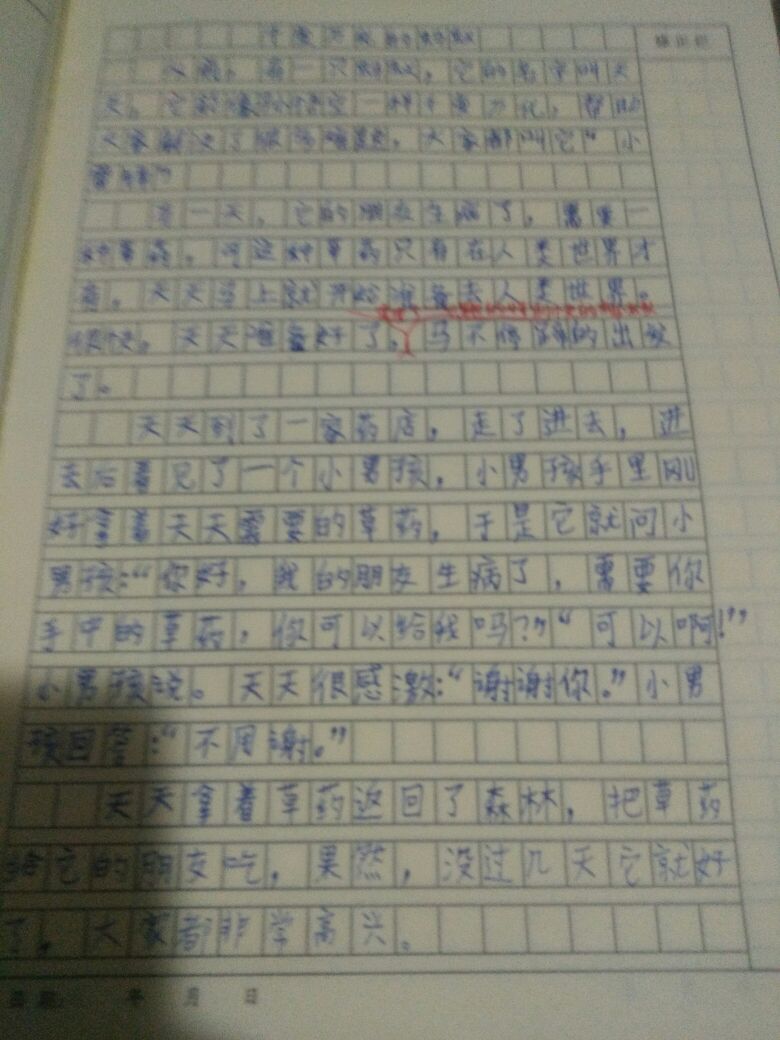 千变万化的蚂蚁
从前，有一只蚂蚁，它的名字叫天
天。它能像孙悟空一样千变万化，帮助
大家解决了很多难题，大家都叫它“小
有一天，它的朋友生病了，需要一
种草药，可这种草药只有在人类世界才
有。天天马上就开始准备去人类世界。
很快，天天准备好了。马不停蹄的出发
了。
天天到了一家药店，走了进去，进
去后看见了一个小男孩，小男孩手里刚
好拿着天天需要的草药，于是它就问小
男孩：“你好，我的朋友生病了，需要你
手中的草药，你可以给我吗？”“可以啊！”
小男孩说。天天很感激：“谢谢你。”小男
孩回答：“不用谢。”
天天拿着草药返回了森林，把草药
给它的朋友吃，果然，没过几天它就好
了。大家都非常高兴。
年 月 日